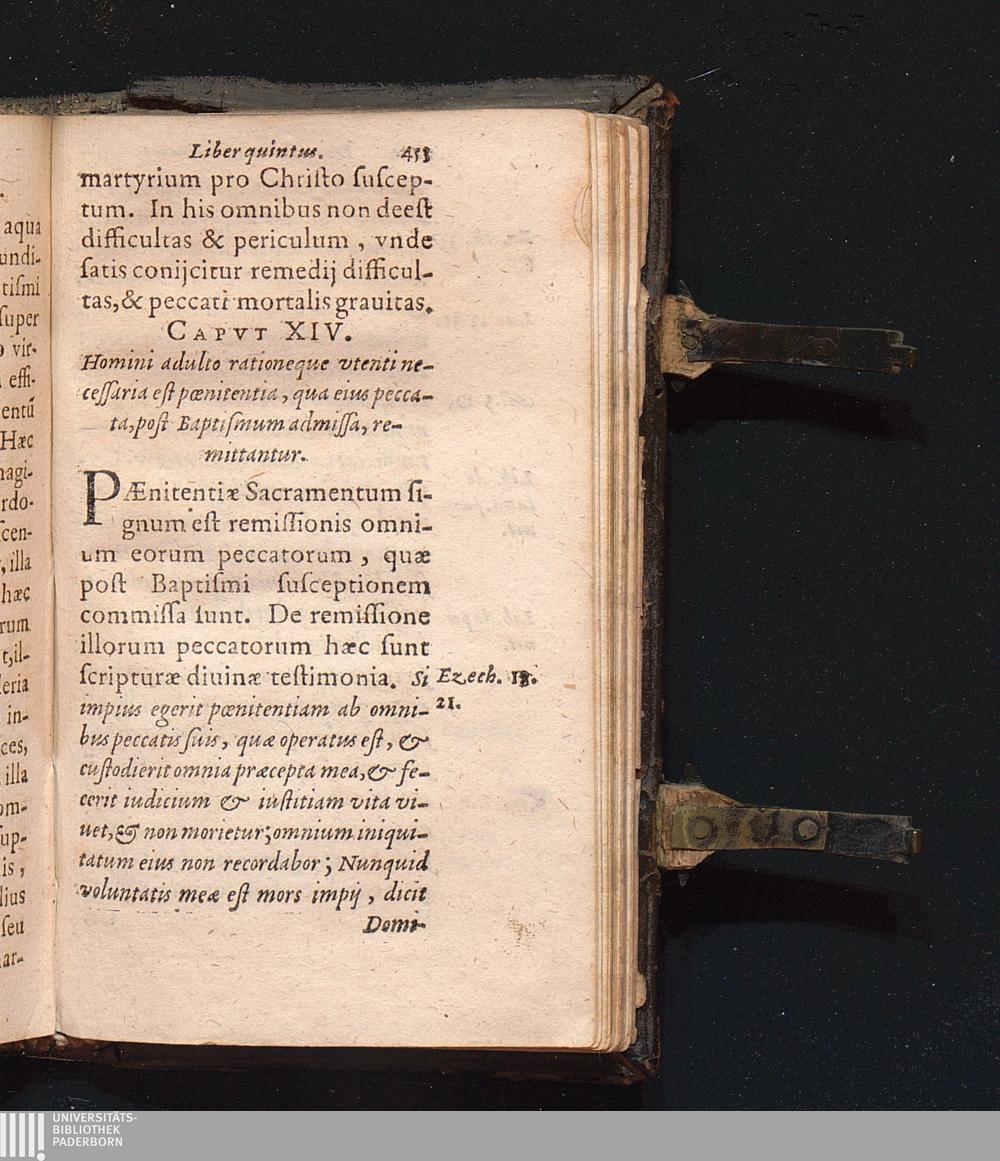 aqua
undi-
tiſmi
ſuper
vir-
effi-
entũ
Hæc
nagi-
rdo-
ſcen-
, illa
hæc
rum
t,il-
leria
in-
ces,
illa
om-
ſup-
is ,
lius
ſeu
ar-
Liber quintus. 453
martyrium pro Chriſto ſuſcep-
tum. In his omnibus non deeſt
difficultas & periculum , vnde
ſatis conijcitur remedij difficul-
tas,& peccati mortalis grauitas.
CAPVT XIV.
Homini adulto rationeque vtenti ne-
ceſſaria eſt pœnitentia , qua eius pecca-
ta,poſt Baptiſmum admiſſa, re-
mittantur.
PÆnitentiæ Sacramentum ſi-
gnum eſt remiſſionis omni-
um eorum peccatorum , quæ
poſt Baptiſmi ſuſceptionem
commiſſa ſunt. De remiſſione
illorum peccatorum hæc ſunt
ſcripturæ diuinæ teſtimonia. Si
Ezech. 18.
21.
impius egerit pœnitentiam ab omni-
bus peccatis ſuis , quæ operatus eſt , &
cuſtodierit omnia præcepta mea,& fe-
cerit iudicium & iuſtitiam vita vi-
uet,& non morietur;omnium iniqui-
tatum eius non recordabor ; Nunquid
voluntatis meæ eſt mors impij , dicit
Domi-
UNIVERSITÄTS-
BIBLIOTHEK
PADERBORN